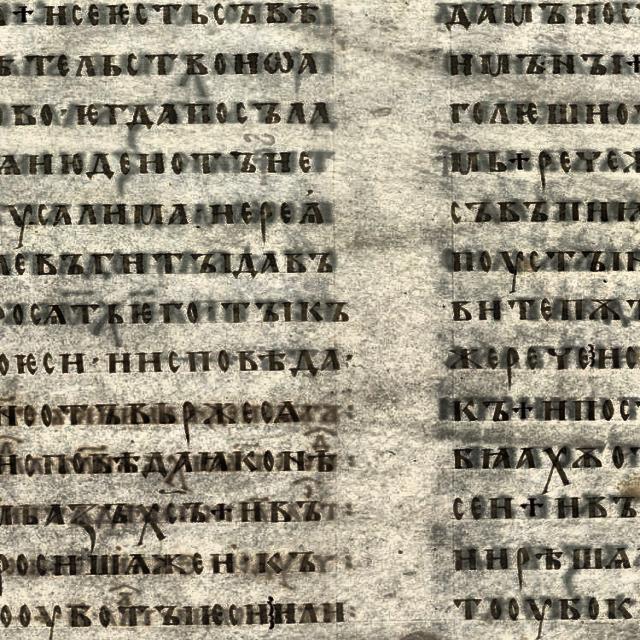 + НСЕЮСТЬСЪВѢ
ѢТЕЛЬСТВОНѠА
ВО·ЮГДАПОСЪЛА
АНЮДЕНОТЪНЕ
УСАЛНМА·НЕРЕА
ЛЕВЪГНТЪІДАВЪ
РОСАТЬЮГО·ТЪІКЪ
ОЮСН·ННСПОВѢДА·
НЕОТЪВЬРЖЕСА
НСПОВѢДАІАКОНѢ
МЬАЗЪХС҃Ъ+НВЪ
РОСНШАЖЕН·КЪ
ООУВОТЪІЮСННЛН
ДАМЪПОС
НМЪНЪІ+
ГОЛЮШНО
МЬ+РЕУЕЖ
СЪВЪПНІ
ПОУСТЪІН
ВНТЕПЖ
ЖЕРЕУЕНО
КЪ+НПОС
ВААХЖО
СЕН+НВЪ
ННРѢША
ТООУБОК